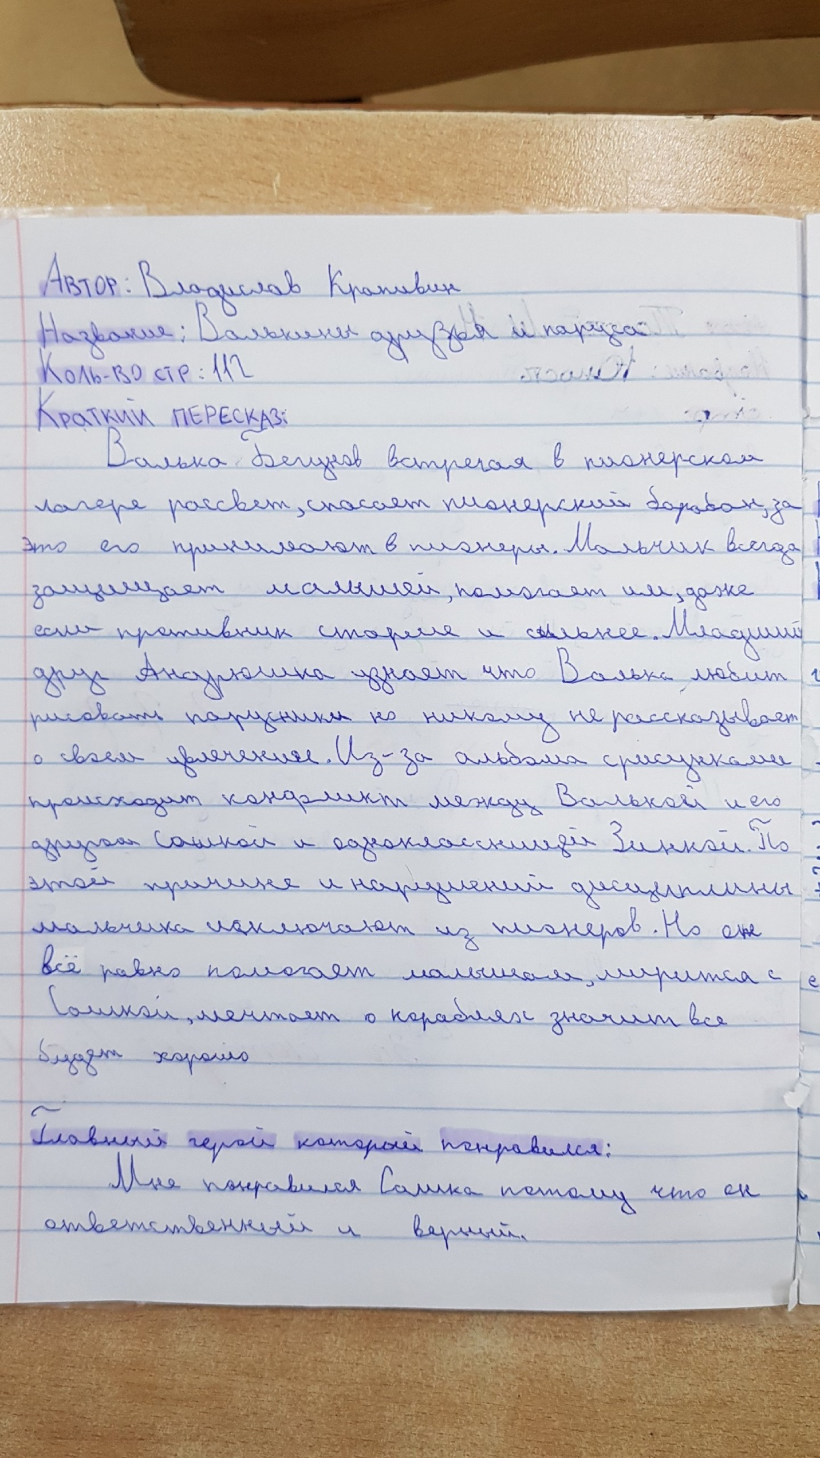 Автор: Владислав Крапивин
Название: Валькины друзья и паруса
Коль-во стр: 112
Краткий пересказ:
Валька Бегунов встречая в пионерском
лагере рассвет, спасает пионерский барабан, за
это его принимают в пионеры. Мальчик всегда
защищает малышей, помогает им, даже
если противник старше и сильнее. Младший
друг Андрюшка узнает что Валька любит
рисовать парусники но никому не рассказывает
о своем увлечение. Из-за альбома срисунками
происходит конфликт между Валькой и его
другом Сашкой и одноклассницей Зинкой. По
этой причине и нарушений дисциплины
мальчика исключают из пионеров. Но он
всё равно помогает малышам, мирится с
Сашкой, мечтает о кораблях значит все
будет хорошо
Главный герой который понравился:
Мне понравился Сашка потому что он
ответственный и верный.